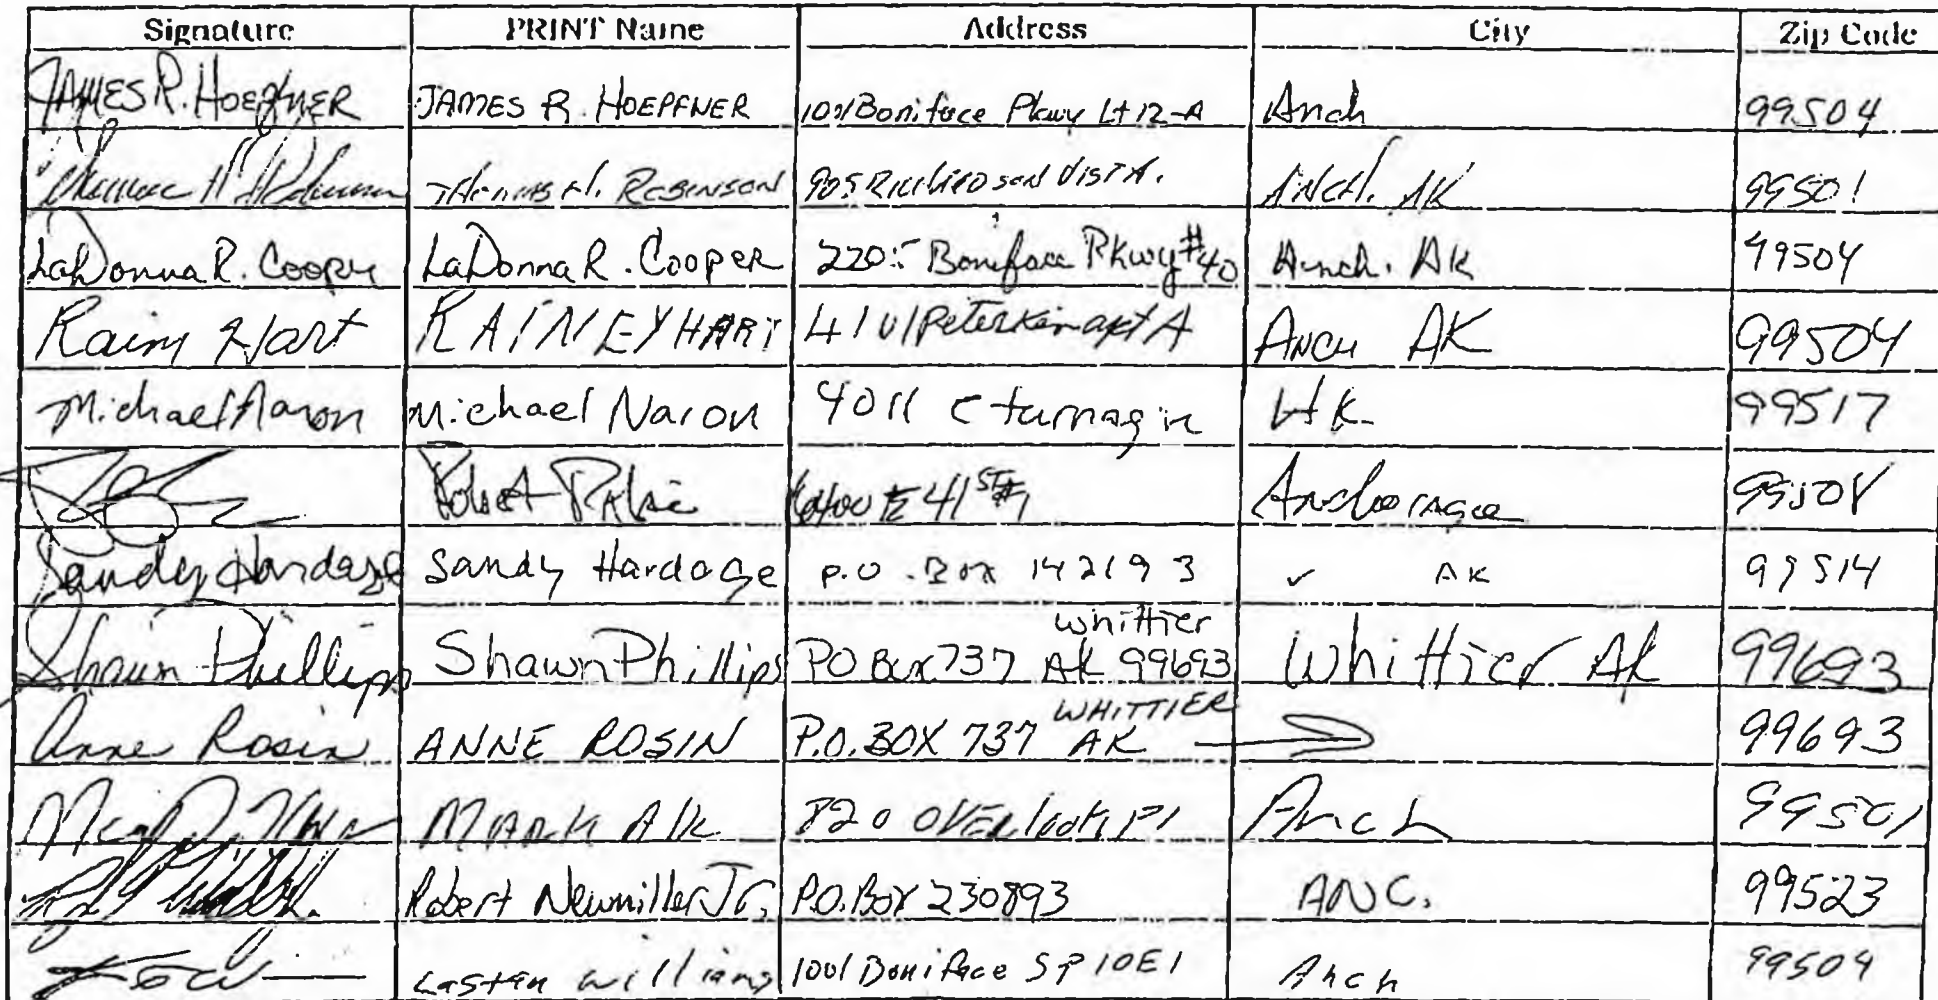 Signature PRINT Name Address City Zip Code
JAMES R. HOEPFNER JAMES R. HOEPFNER 1001 Boniface Pkwy Lt 12-A Anch 99504
THOMAS H. ROBINSON 905 RICHARDSON VISTA. ANCH. AK 99501
LaDonna R. Cooper LaDonna R. Cooper Boniface Pkwy #40 Anch. AK 99504
Rainy Hart RAINEY HART Peterkin apt A ANCH AK 99504
Michael Naron Michael Naron 4011 C turnagin AK 99517
Robert E 41ST Anchorage
Sandy Hardage Sandy Hardage P.O. Box 142193 ✓ AK 99514
Whittier
Shawn Phillips Shawn Phillips PO Box 737 AK 99693 Whittier AK 99693
WHITTIER
Anne Rosin ANNE ROSIN P.O. BOX 737 AK → 99693
MARK 820 OVERlook Pl Anch 99501
Robert Newmiller Jr. P.O. Box 230893 ANC. 99523
williams 1001 Boniface SP 10E1 Anch 99504